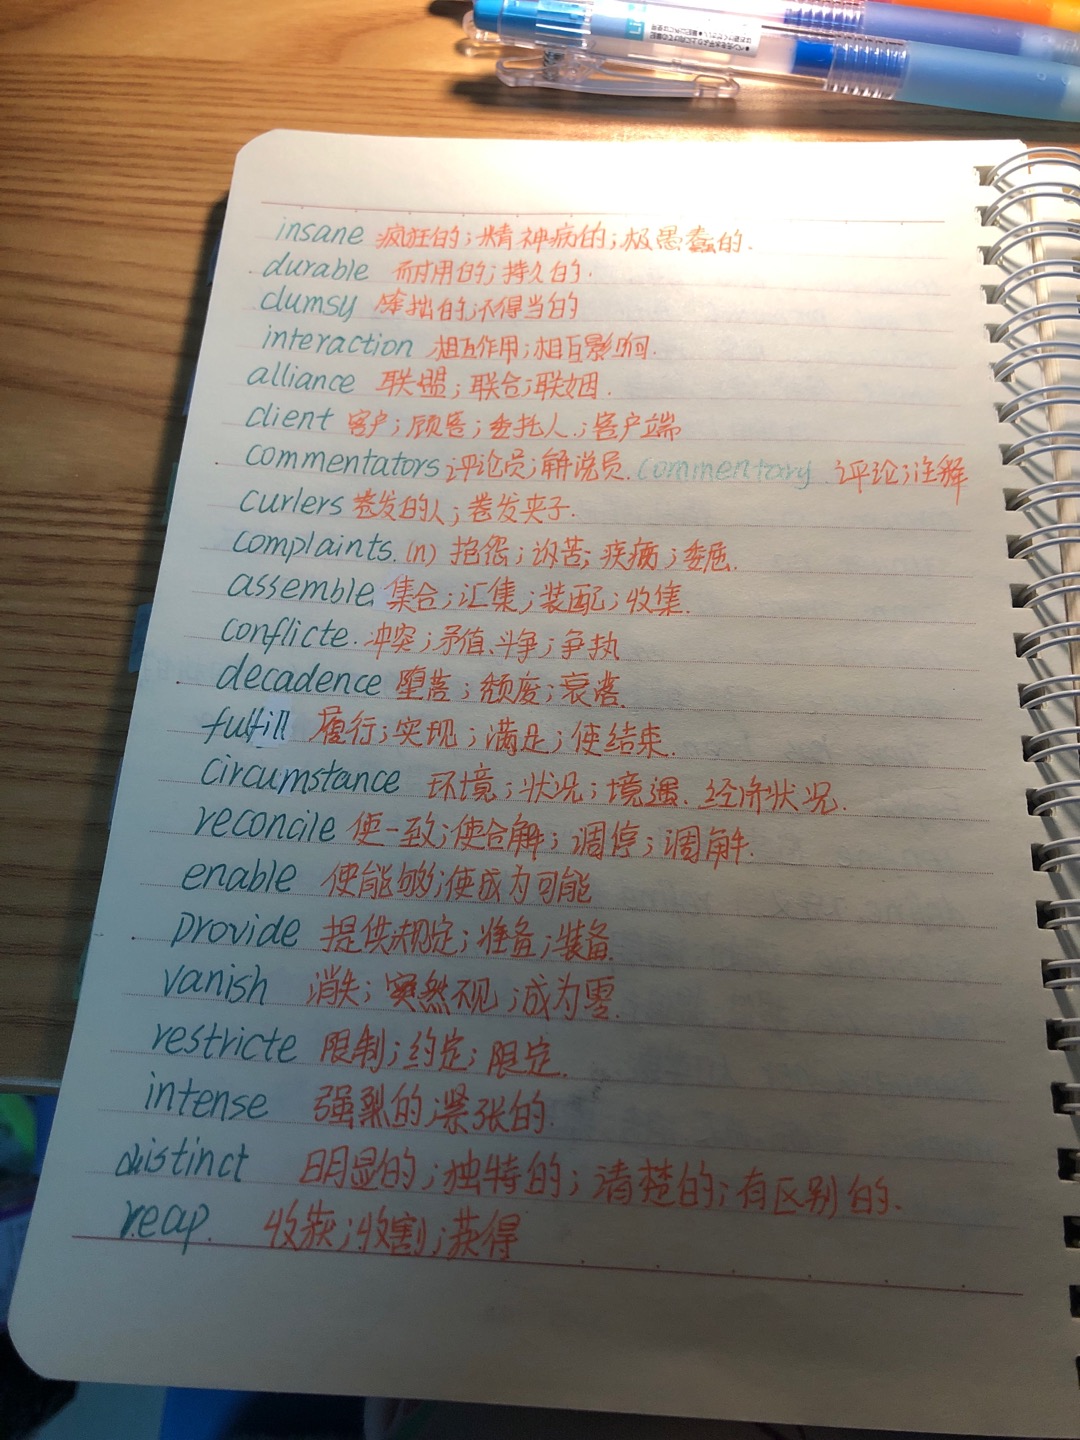 insane 疯狂的;精神病的;极愚蠢的.
durable 耐用的;持久的.
clumsy 笨拙的;不得当的
interaction 相互作用;相互影响.
alliance 联盟;联合;联姻.
client 客户;顾客;委托人.;客户端
commentators 评论员;解说员. commentary 评论;注解
curlers 卷发的人;卷发夹子.
complaints. (n) 抱怨;诉苦;疾病;委屈.
assemble 集合;汇集;装配;收集.
conflicte. 冲突;矛值、斗争;争执
decadence 堕落;颓废;衰落.
fulfill 履行;实现;满足;使结束.
circumstance 环境;状况;境遇、经济状况.
reconcile 使一致;使合解;调停;调解.
enable 使能够;使成为可能
provide 提供;规定;准备;装备.
vanish 消失;突然不见;成为零.
restricte 限制;约定;限定.
intense 强烈的;紧张的.
distinct 明显的;独特的;清楚的;有区别的.
reap. 收获;收割;获得